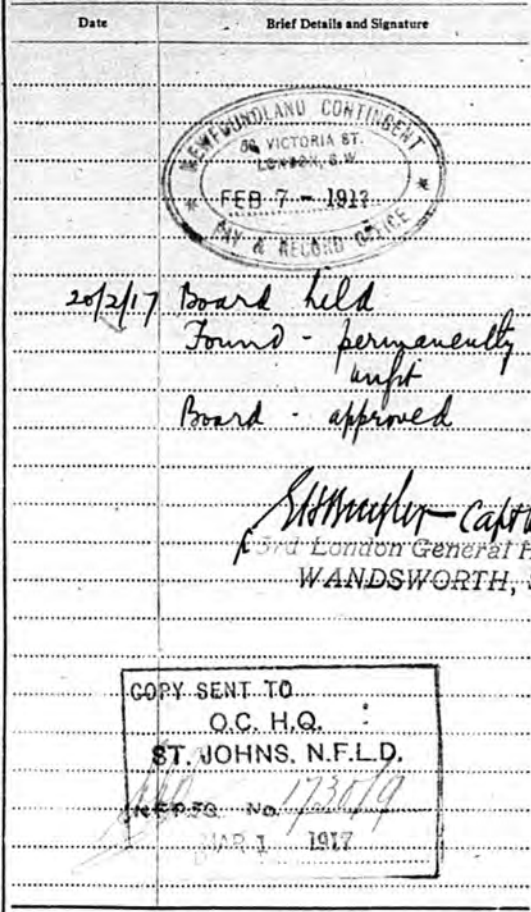 Date Brief Details and Signature
NEWFOUNDLAND CONTINGENT
VICTORIA ST.
LONDON, S.W.
FEB 7 - 1917
PAY & RECORD OFFICE
20/2/17 Board held
Found - permanently
unfit
Board - approved
Capt
3rd London General H
WANDSWORTH, S
COPY SENT TO
O.C. H.Q.
ST. JOHNS. N.F.L.D.
No. 1730/9
MAR 1 1917